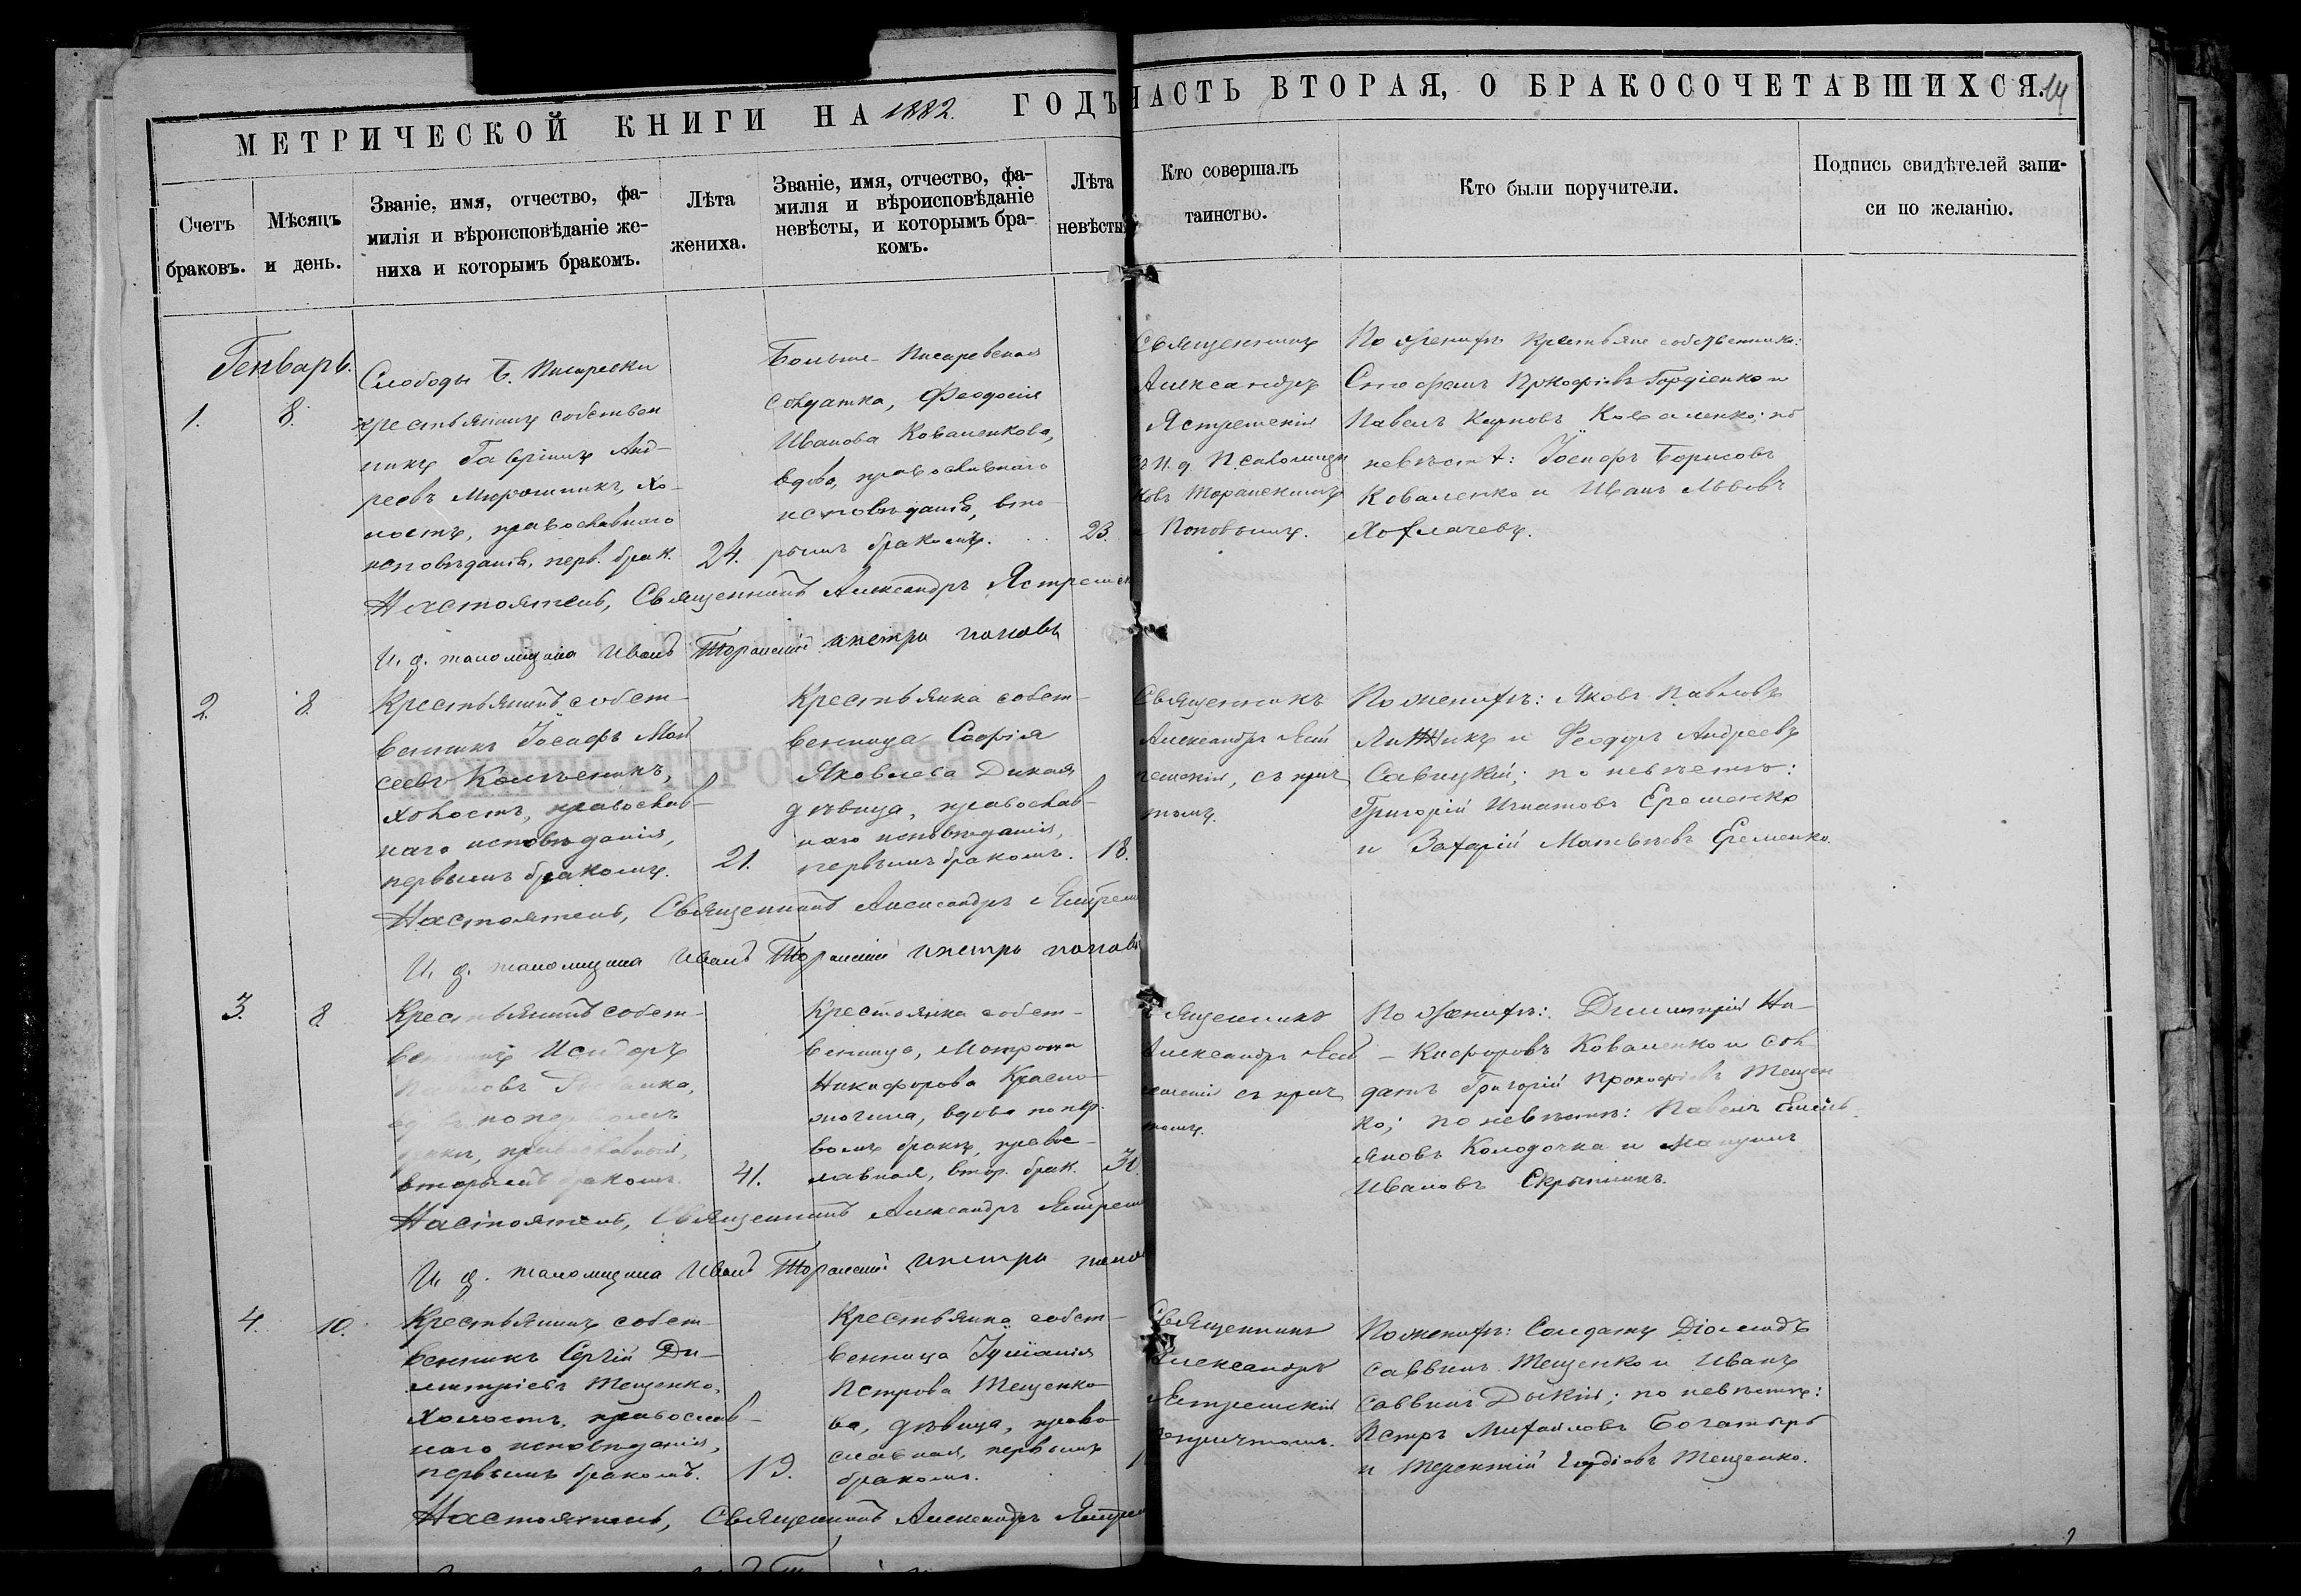 МЕТРИЧЕСКОЙ КНИГИ НА 1882. ГОДЪ
ЧАСТЬ ВТОРАЯ, О БРАКОСОЧЕТАВШИХСЯ.
14
Счетъ
браковъ.
Мѣсяцъ
и день.
Званіе, имя, отчество, фа-
милія и вѣроисповѣданіе же-
ниха и которымъ бракомъ.
Лѣта
жениха.
Званіе, имя, отчество, фа-
милія и вѣроисповѣданіе
невѣсты, и которымъ бра-
комъ.
Лѣта
невѣсты
Кто совершалъ
таинство.
Кто были поручители.
Подпись свидѣтелей запи-
си по желанію.
Генварь.
1.
8.
Слободы Б. Писаревки
крестьянинъ собствен
никъ Гавріилъ Анд-
реевъ Мирошникъ, хо-
лостъ, православнаго
исповѣданія, перв. брак.
24.
Больше-Писаревская
солдатка, Феодосія
Иванова Коваленкова,
вдова, православнаго
исповѣданія, вто-
рымъ бракомъ.
23.
Священникъ
Александръ
И. д. Псаломщи
Поповымъ.
По женихѣ крестьяне собственники:
Стефанъ Прокофіевъ Гордіенко и
Павелъ Карповъ Коваленко; по
невѣстѣ: Іосифъ Борисовъ
Коваленко и Иванъ Львовъ
Настоятель, Священникъ Александръ
И. д. псаломщика Иванъ Петръ Поповъ
2.
8.
Крестьянинъ собст-
венникъ Іосафъ Мой
сеевъ
холостъ, православ-
наго исповѣданія,
первымъ бракомъ.
21.
Крестьянка собст-
венница Софія
Яковлева Дикая
дѣвица, православ-
наго исповѣданія,
первымъ бракомъ.
18.
Священникъ
Александръ
съ прич
томъ.
По женихѣ: Яковъ Павловъ
и Феодоръ Андреевъ
Савицкій; по невѣстѣ:
Григорій Игнатовъ Еременко
и Захарій Матвѣевъ Еременко.
Настоятель, Священникъ Александръ
И. д. псаломщика Иванъ Петръ Поповъ
3.
8.
Крестьянинъ собст-
венникъ Исидоръ
Павловъ
православный,
вторымъ бракомъ.
41.
Крестьянка собст-
венница, Матрона
Никифорова Красно-
вдова по пер-
вомъ бракѣ, правос-
лавная, втор. брак.
30.
Священникъ
Александръ
съ прич
томъ.
По женихѣ: Димитрій Ни-
кифоровъ Коваленко и сол
датъ Григорій Прокофіевъ Тещен
ко; по невѣстѣ: Павелъ Емель-
яновъ Колодочка и
Ивановъ Скрыпникъ.
Настоятель, Священникъ Александръ
И. д. псаломщика Иванъ Петръ
4.
10.
Крестьянинъ собст-
венникъ Сергій Ди-
митріевъ Тещенко,
холостъ, православ-
наго исповѣданія,
первымъ бракомъ.
19.
Крестьянка собст-
венница Іуліанія
Петрова Тещенко-
ва, дѣвица, право-
славная, первымъ
бракомъ.
Священникъ
Александръ
По женихѣ: Солдаты Діомидъ
Саввинъ Тещенко и Иванъ
Саввинъ Дикій; по невѣстѣ:
Петръ Михайловъ Богатырь
и Терентій Гордіевъ Тещенко.
Настоятель, Священникъ Александръ